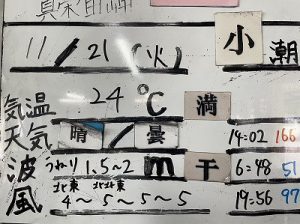 11/21(火) 小潮
気温 24℃ 満
天気 晴/曇 14:02 166
波 うねり 1.5~2m 干 6:48 51
風 北東 北北東 4~5~5~5 19:56 97